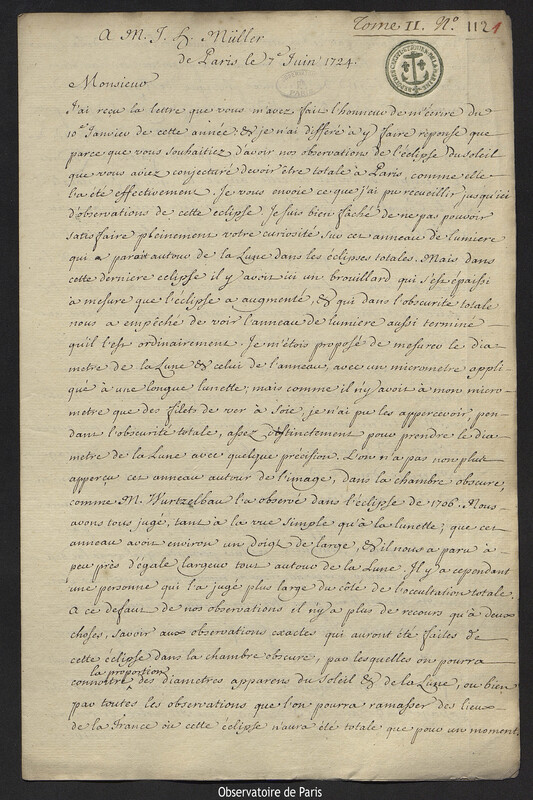 Tome II. N.º 112 1
A M. J. H. Müller
de Paris le 7.e Juin 1724.
Monsieur
J'ai reçu la lettre que vous m'avez fait l'honneur de m'écrire du
10.e Janvier de cette année: & je n'ai différé à y faire réponse que
parce que vous souhaitiez d'avoir nos observations de l'éclipse du soleil
que vous aviez conjecturé devoir être totale à Paris, comme elle
l'a été effectivement. Je vous envoie ce que j'ai pu recueillir jusqu'ici
d'observations de cette éclipse. Je suis bien fâché de ne pas pouvoir
satisfaire pleinement votre curiosité sur cet anneau de lumiere
qui paroit autour de la Lune dans les éclipses totales. Mais dans
cette derniere eclipse il y avoit ici un brouillard qui s'est épaissi
à mesure que l'éclipse a augmenté, & qui dans l'obscurité totale
nous a empêché de voir l'anneau de lumiere aussi terminé
qu'il l'est ordinairement. Je m'étois proposé de mesurer le dia-
metre de la Lune & celui de l'anneau, avec un micrometre appli-
qué à une longue lunette; mais comme il n'y avoit à mon micro-
metre que des filets de ver à soie, je n'ai pu les appercevoir, pen-
dant l'obscurité totale, assez distinctement pour prendre le dia-
metre de la Lune avec quelque précision. L'on n'a pas non plus
apperçu cet anneau autour de l'image, dans la chambre obscure,
comme M. Wurtzelbau l'a observé dans l'éclipse de 1706. Nous
avons tous jugé, tant à la vue simple qu'à la lunette, que cet
anneau avoit environ un doigt de large, & il nous a paru à
peu près d'égale largeur tout autour de la Lune. Il y a cependant
une personne qui l'a jugé plus large du côté de l'occultation totale.
A ce defaut de nos observations il n'y a plus de recours qu'à deux
choses, savoir aux observations exactes qui auront été faites de
cette éclipse dans la chambre obscure, par lesquelles on pourra
connoitre la proportion des diametres apparens du Soleil & de la Lune, ou bien
par toutes les observations que l'on pourra ramasser des lieux
de la France où cette éclipse n'aura été totale que pour un moment.
Observatoire de Paris